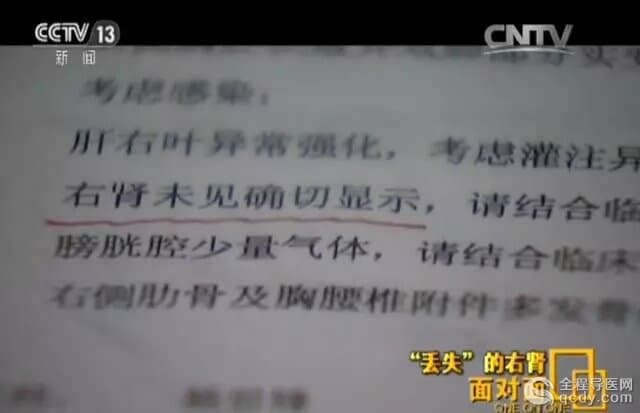 CCTV 13
新闻
CNTV
考虑感染；
肝右叶异常强化，考虑灌注异
右肾未见确切显示，请结合临
膀胱腔少量气体，请结合临床
右侧肋骨及胸腰椎附件多发骨
“丢失”的右肾
面对面
ONE ON ONE
全程导医网
qcdy.com